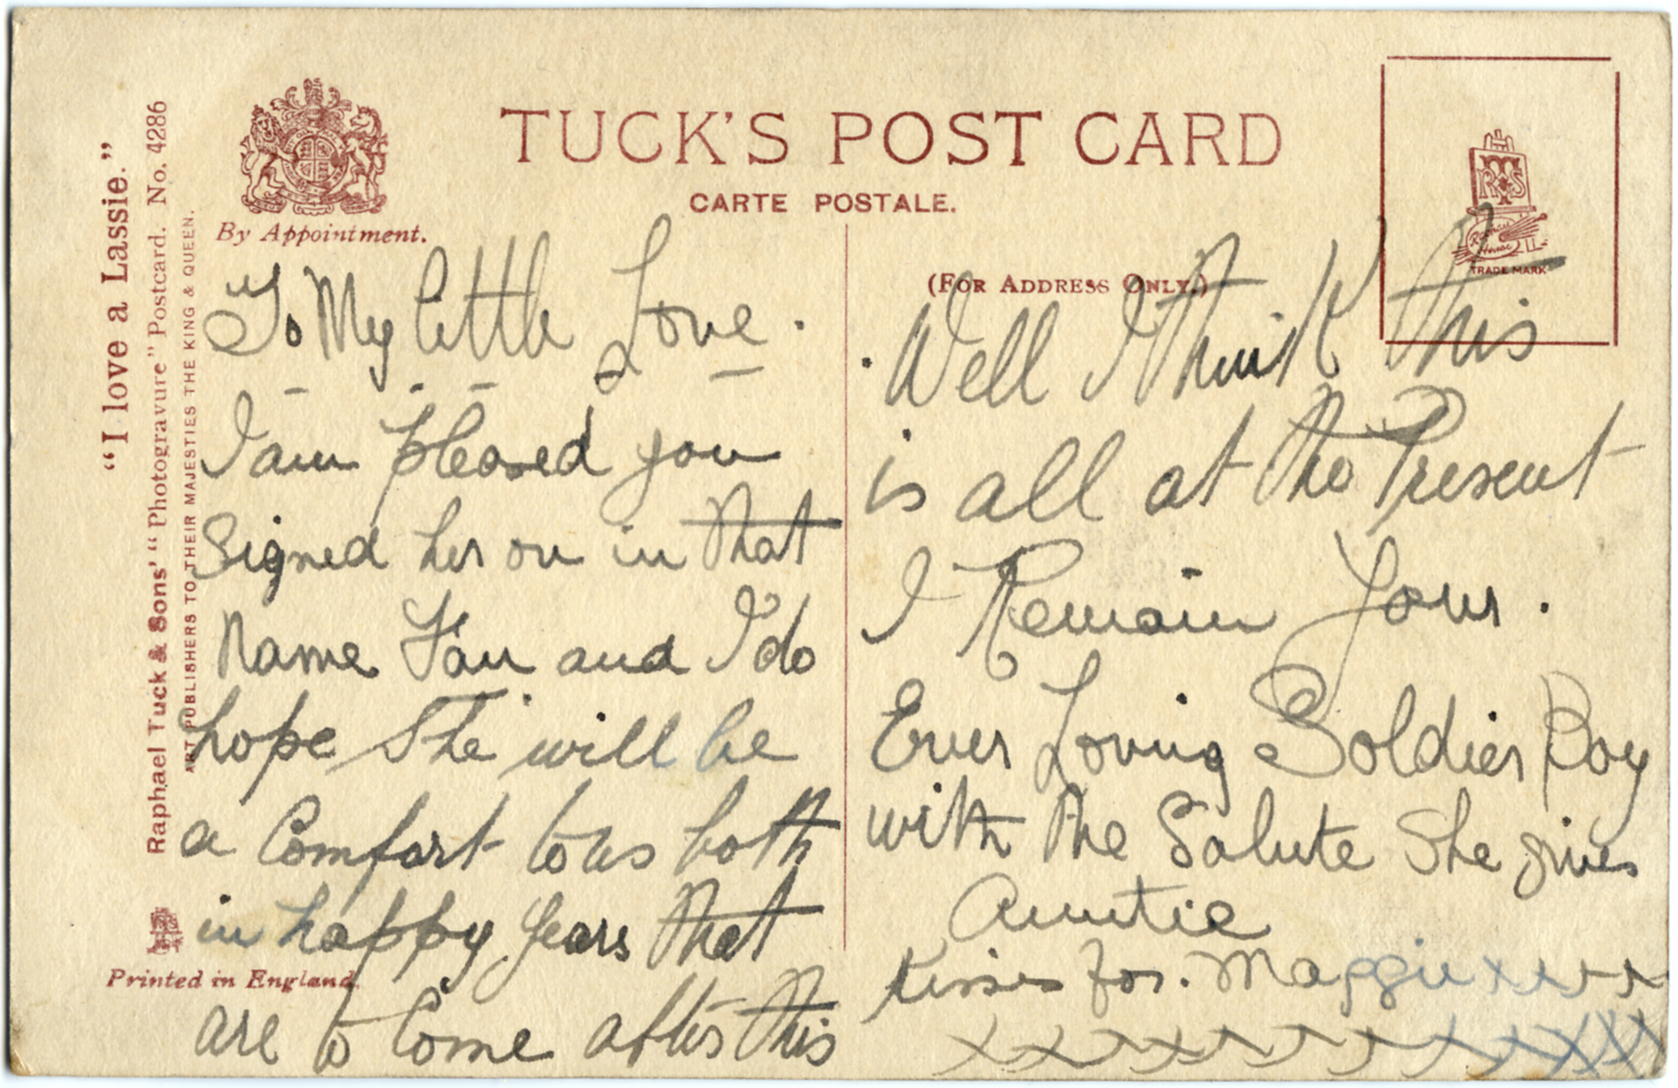 "I love a Lassie."
Raphael Tuck & Sons' "Photogravure" Postcard. No. 4286
ART PUBLISHERS TO THEIR MAJESTIES THE KING & QUEEN.
By Appointment.
TUCK'S POST CARD
CARTE POSTALE.
(FOR ADDRESS ONLY.)
Raphael House
TRADE MARK
To My little Love.
I am pleased you
signed her on in that
Name Fan and I do
hope She will be
a Comfort to us both
in happy years that
are to Come after this
Printed in England.
Well I think this
is all at the Present
I Remain Your.
Ever Loving Soldier Boy
with the Salute She gives
Auntie
Kisses for. Maggie xxxxx
xxxxxxxxxxxx